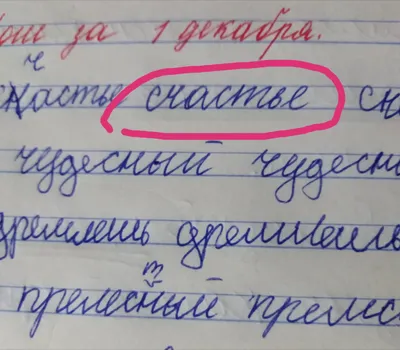 за 1 декабря.
ч
счастье
чудесный чудесн
дремлешь дремлешь
т
прелесный прелес